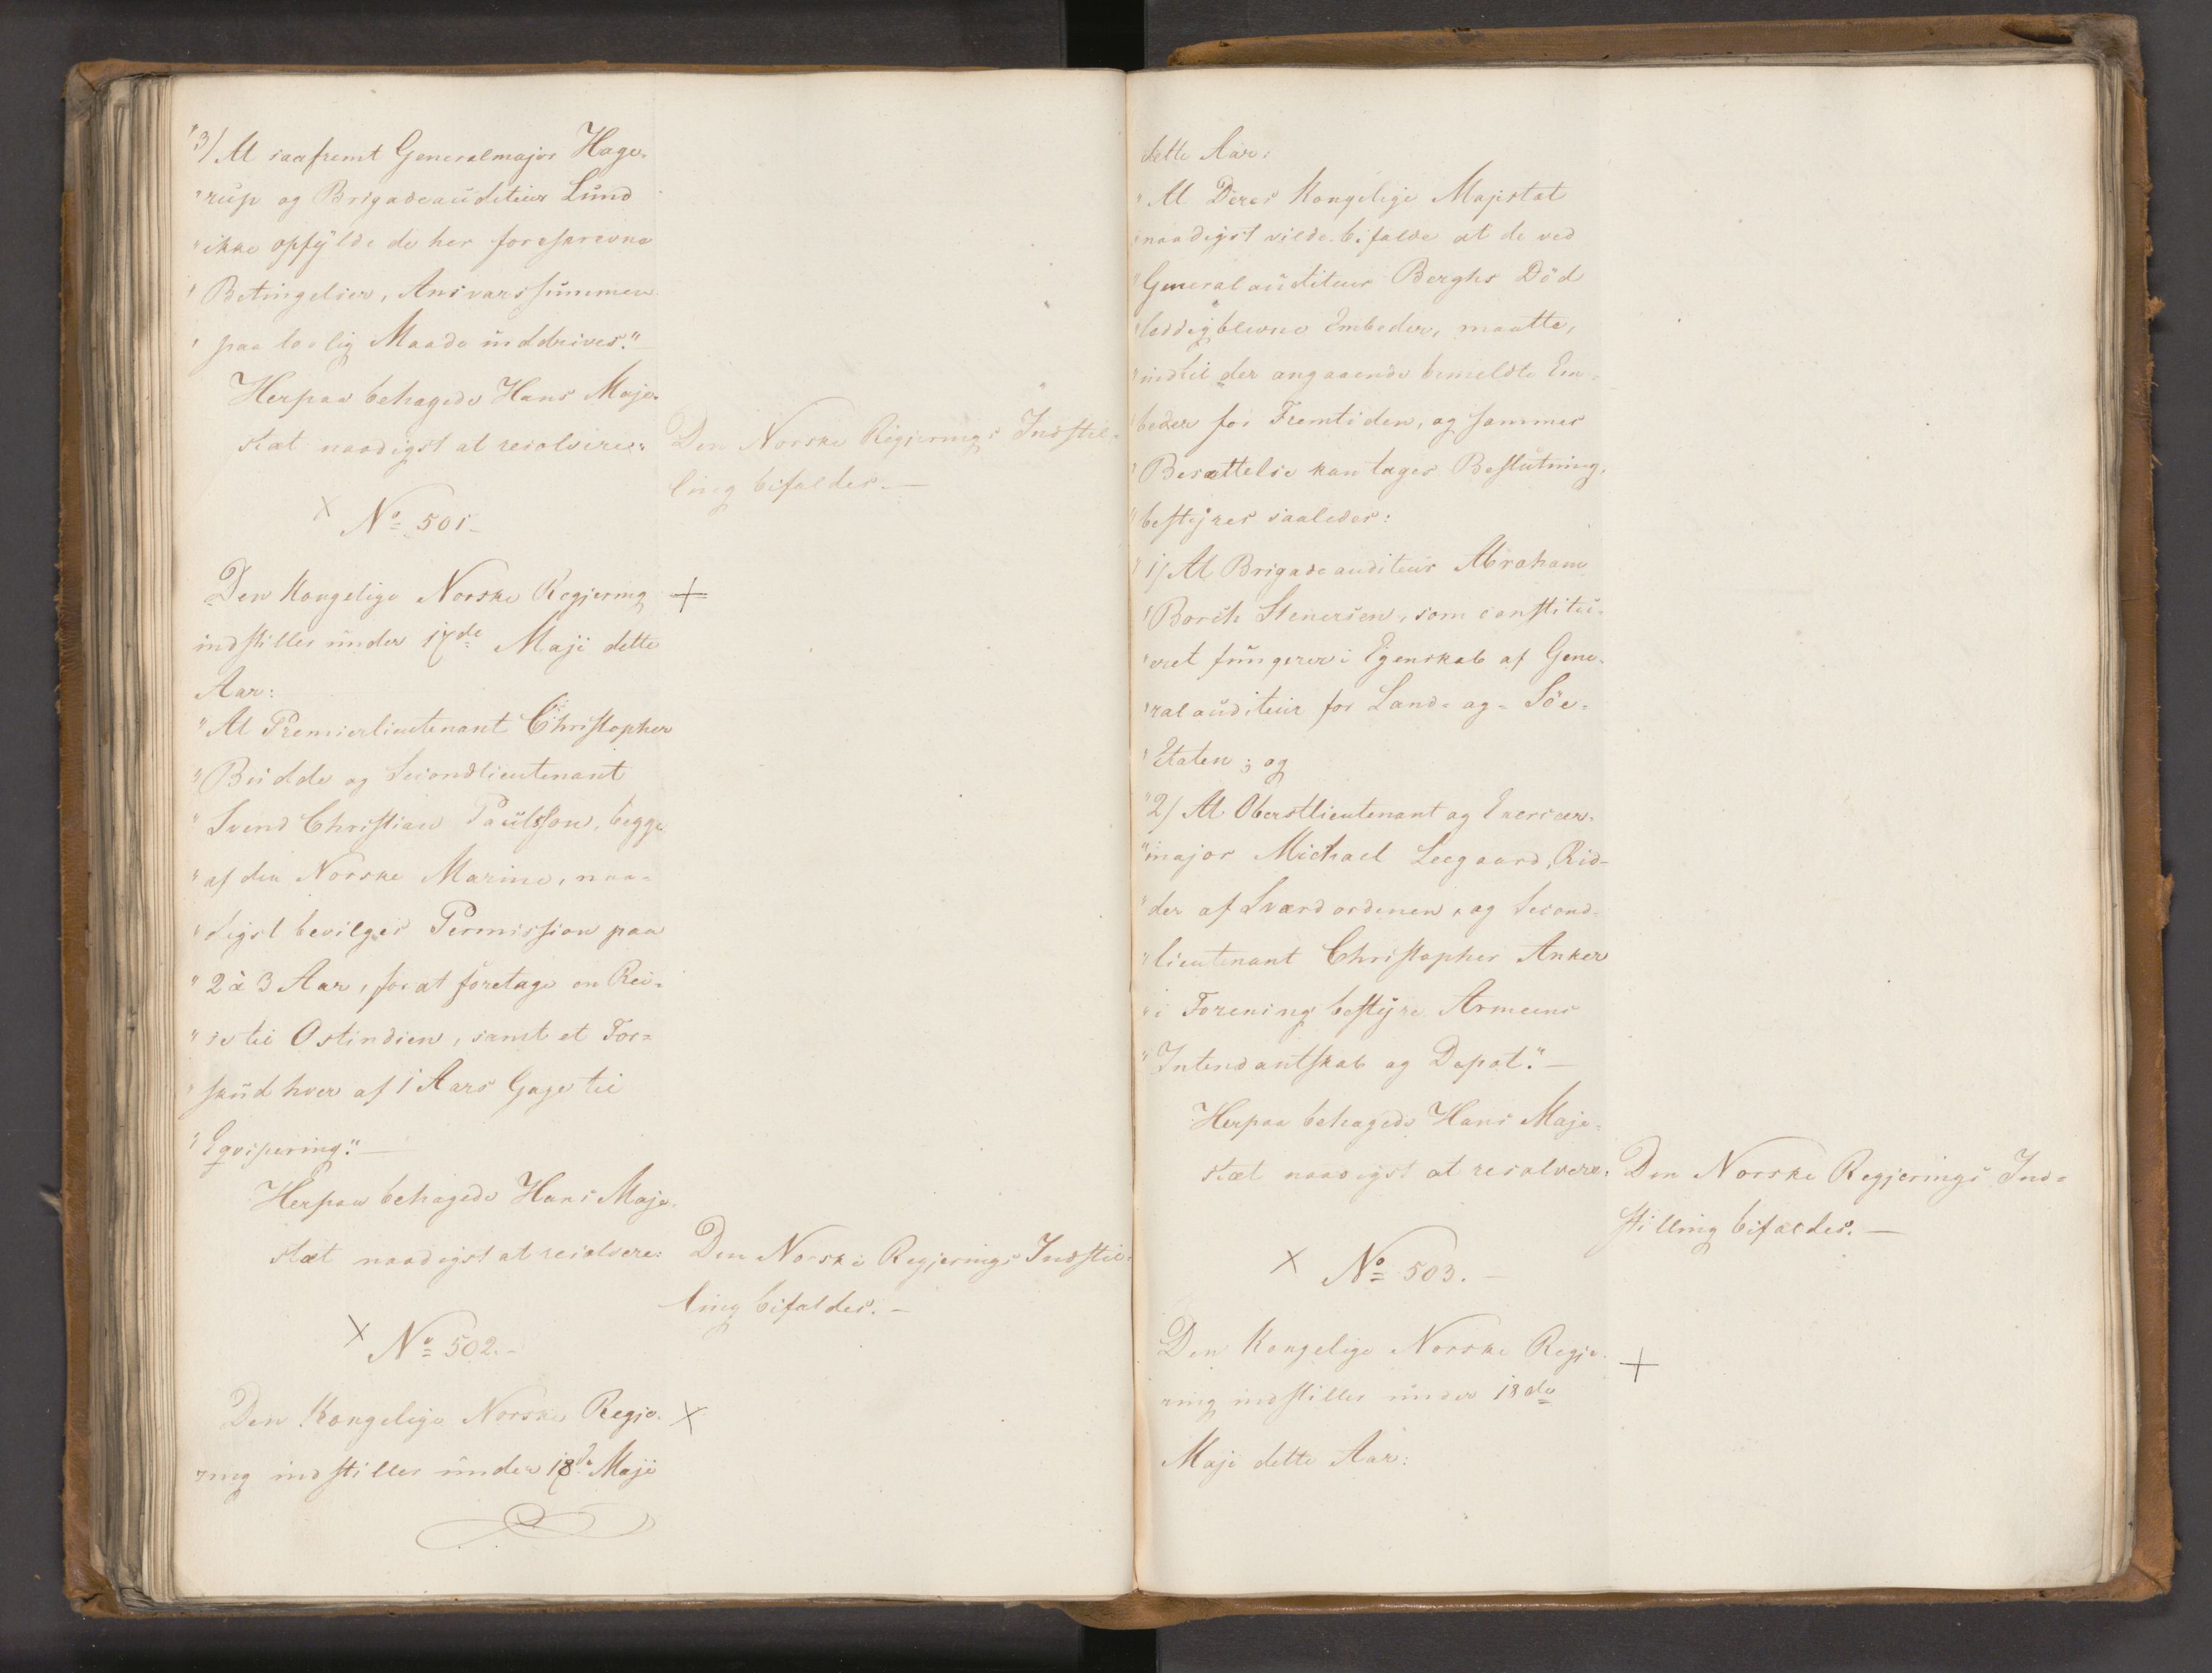 "3/ At saafremt Generalmajor Hage-
"rup og Brigadeauditeur Lund
"ikke opfylde de her foreskrevne
"Betingelser, Ansvarssummen
"paa lovlig Maade inddrives."
Herpaa behagede Hans Maje-
stæt naadigst at resolvere:
Den Norske Regjerings Indstil-
ling bifaldes. —
× No 501 —
Den Kongelige Norske Regjering +
indstiller under 17de Maji dette
Aar:
"At Premierlieutenant Christopher
"Budde og Secondlieutenant
"Svend Christian Paulsson, begge
"af den Norske Marine, naa-
"digst bevilges Permission paa
"2 à 3 Aar, for at foretage en Rei-
"se til Ostindien, samt et For-
"skud hver af 1 Aars Gage til
"Eqvipering." —
Herpaa behagede Hans Maje-
stæt naadigst at resolvere:
Den Norske Regjerings Indstil-
ling bifaldes. —
× No 502. —
Den Kongelige Norske Regje- ×
ring indstiller under 18de Maji
dette Aar:
"At Deres Kongelige Majestæt
"naadigst vilde bifalde at de ved
"Generalauditeur Berghs Död
"ledigblevne Embeder, maatte,
"indtil der angaaende bemeldte Em-
"beder for Fremtiden, og sammes
"Besættelse kan tages Beslutning,
"bestyres saaledes:
"1/ At Brigadeauditeur Abraham
"Borch Stenersen, som constitu-
"eret fungerer i Egenskab af Gene-
"ralauditeur for Land- og Söe-
"Etaten; og
"2/ At Oberstlieutenant og Exerceer-
"major Michael Leegaard, Rid-
"der af Sværdordenen, og Second-
"lieutenant Christopher Anker
"i Forening bestyre Armeens
"Intendantskab og Depot." —
Herpaa behagede Hans Maje-
stæt naadigst at resolvere:
Den Norske Regjerings Ind-
stilling bifaldes. —
× No 503. —
Den Kongelige Norske Regje- +
ring indstiller under 18de
Maji dette Aar: